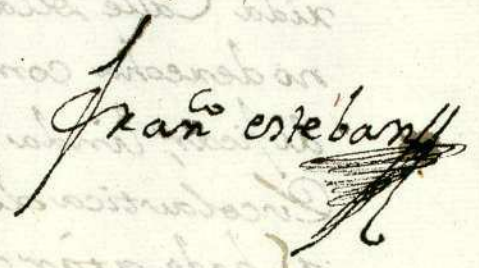 Franco esteban